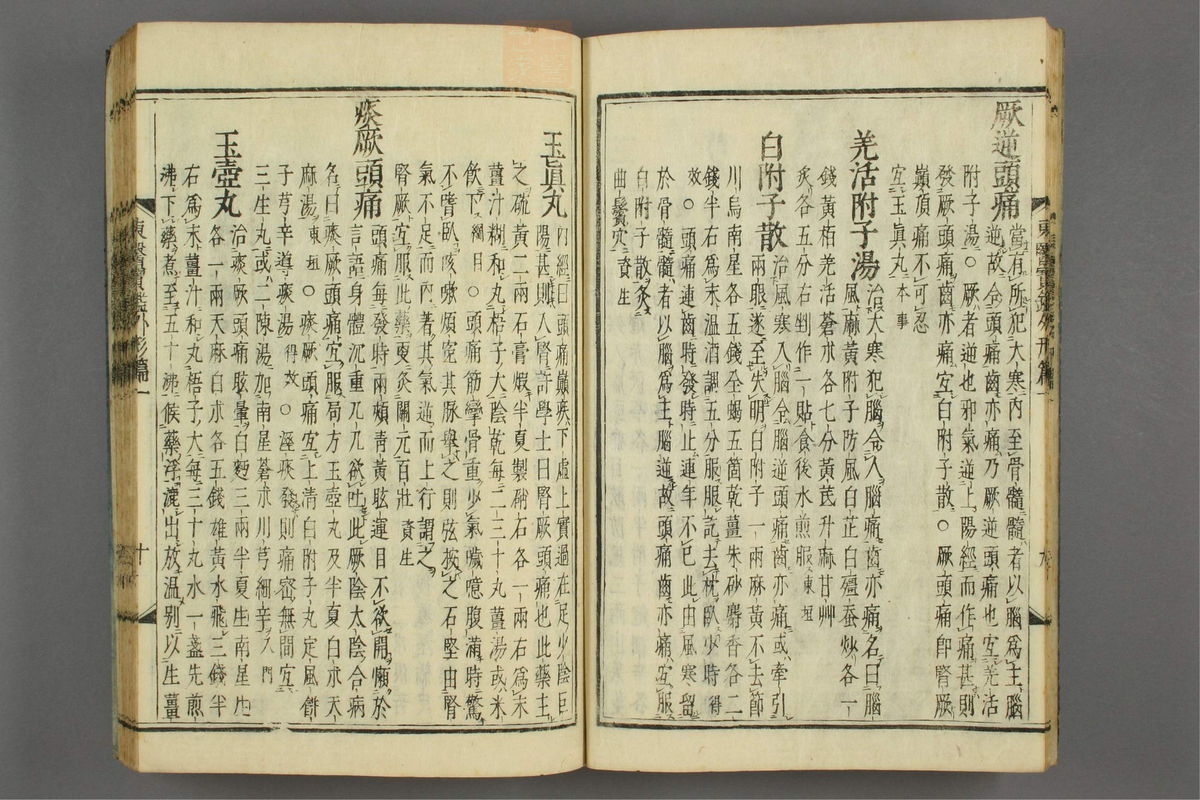 厥逆頭痛 當有所犯大寒內至骨髓髓者以腦爲主腦
逆故令頭痛齒亦痛乃厥逆頭痛也宜羌活
附子湯○厥者逆也邪氣逆上陽經而作痛甚則
發厥頭痛齒亦痛宜白附子散○厥頭痛卽腎厥
巓頂痛不可忍
宜玉眞丸本事
羌活附子湯 治大寒犯腦令人腦痛齒亦痛名曰腦
風麻黃附子防風白芷白殭蚕炒各一
錢黃栢羌活蒼朮各七分黃芪升麻甘艸
炙各五分右剉作一貼食後水煎服東垣
白附子散 治風寒入腦令腦逆頭痛齒亦痛或牽引
兩眼遂至失明白附子一兩麻黃不去節
川烏南星各五錢全蝎五箇乾薑朱砂麝香各二
錢半右爲末溫酒調五分服服訖去枕臥少時得
效○頭痛連齒時發時止連年不已此由風寒留
於骨髓髓者以腦爲主腦逆故頭痛齒亦痛宜服
白附子散灸
曲鬢穴資生
東醫寶鑑外形篇一
九
玉眞丸 內經曰頭痛巓疾下虛上實過在足少陰巨
陽甚則入腎許學士曰腎厥頭痛也此藥主
之硫黃二兩石膏煆半夏製硝石各一兩右爲末
薑汁糊和丸梧子大陰乾每二三十丸薑湯或米
飮下綱目○頭痛筋攣骨重少氣噦噫腹滿時驚
不嗜臥咳嗽煩寃其脉擧之則弦按之石堅由腎
氣不足而內著其氣逆而上行謂之
腎厥宜服此藥更灸關元百壯資生
痰厥頭痛 頭痛每發時兩頰靑黃眩運目不欲開懶於
言語身體沉重兀兀欲吐此厥陰太陰合病
名曰痰厥頭痛宜服局方玉壺丸及半夏白朮天
麻湯東垣○痰厥頭痛宜上淸白附子丸定風餠
子芎辛導痰湯得效○溼痰發則痛密無間宜
三生丸或二陳湯加南星蒼朮川芎細辛入門
玉壺丸 治痰厥頭痛眩暈白麪三兩半夏生南星生
各一兩天麻白朮各五錢雄黃水飛三錢半
右爲末薑汁和丸梧子大每三十丸水一盞先煎
沸下藥煮至五十沸候藥浮漉出放溫别以生薑
東醫寶鑑外形篇一
十